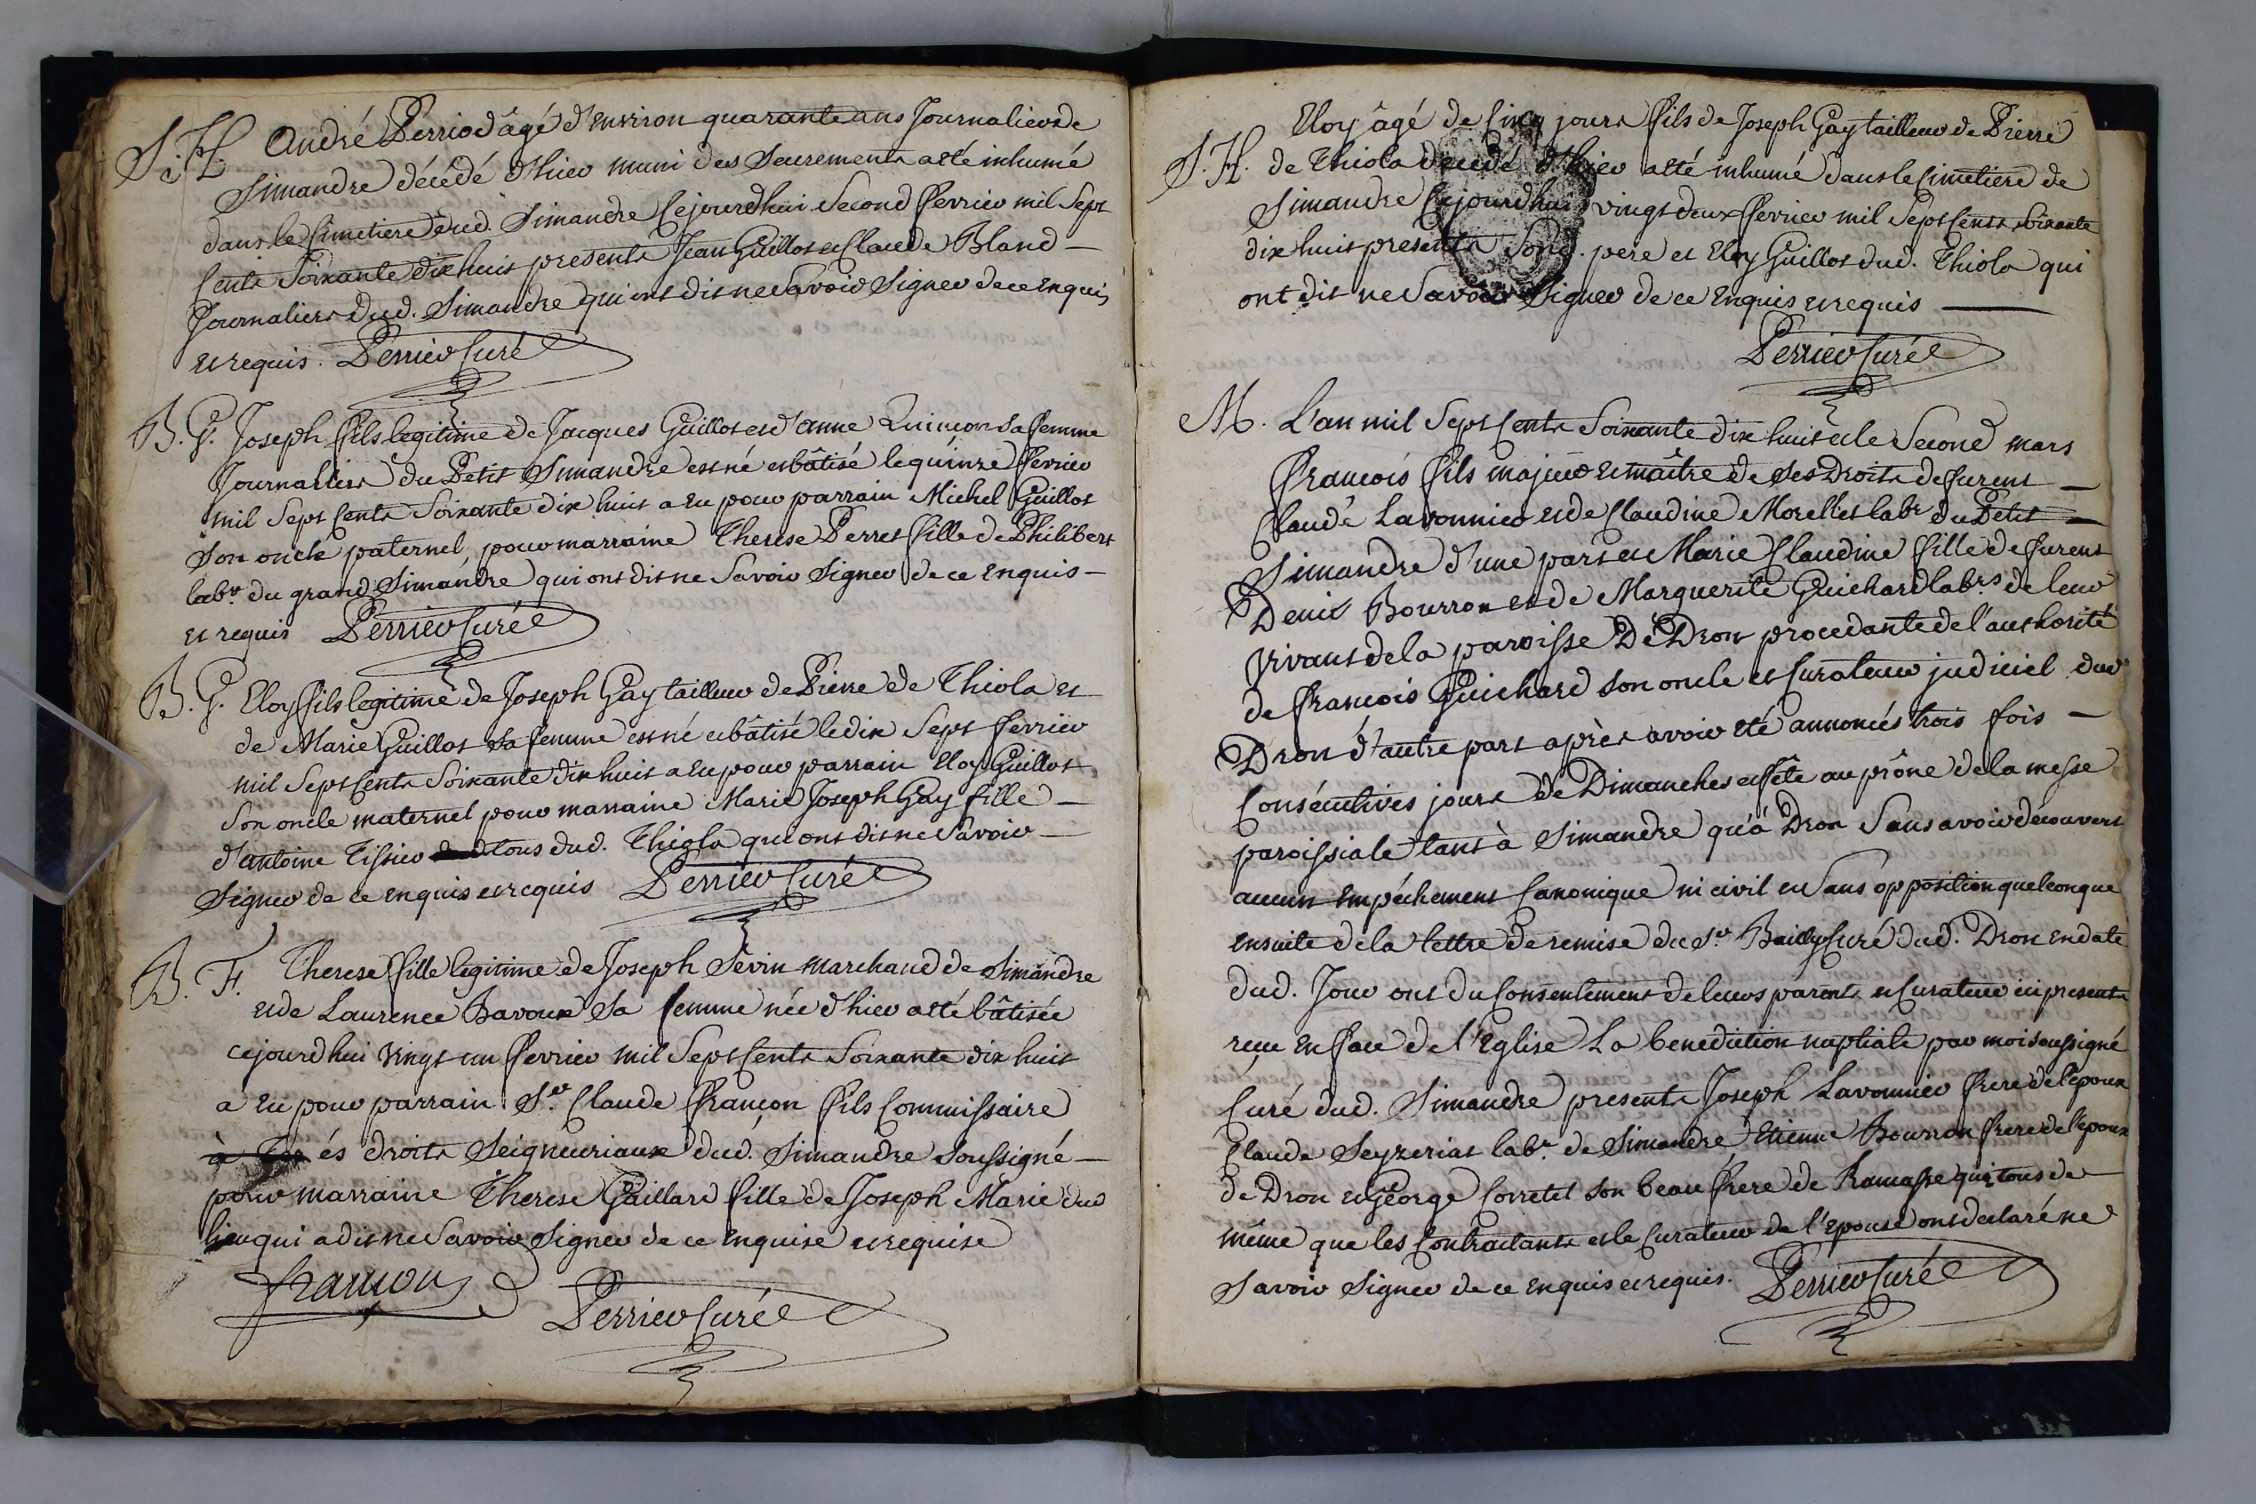 S. H. André Perriod âgé d'environ quarante ans Journalier de
Simandre décédé d'hier muni des Sacrements a été inhumé
dans le Cimetiere dud. Simandre Cejourdhui Second fevrier mil Sept
Cents Soixante dix huit presents Jean Guillot et Claude Bland —
Journaliers dud. Simandre qui ont dit ne Savoir Signer de ce enquis
et requis. Perrier Curé
B. G. Joseph fils legitime de Jacques Guillot et d'anne Quinçon sa femme
Journaliers du Petit Simandre est né et bâtisé le quinze fevrier
mil Sept Cents Soixante dix huit a eu pour parrain Michel Guillot
Son oncle paternel, pour marraine Therese Perret fille de Philibert
labr. du grand Simandre qui ont dit ne Savoir Signer de ce enquis —
et requis Perrier Curé
B. G. Eloy fils legitime de Joseph Gay tailleur de Pierre de Thiola et
de Marie Guillot sa femme est né et bâtisé le dix Sept fevrier
mil Sept Cents Soixante dix huit a eu pour parrain Eloy Guillot
Son oncle maternel pour marraine Marie Joseph Gay fille —
d'antoine Tissier tous dud. Thiola qui ont dit ne Savoir —
Signer de ce enquis et requis Perrier Curé
B. F. Therese fille legitime de Joseph Sevin marchand de Simandre
et de Laurence Bavoux Sa femme née d'hier a été bâtisée
cejourdhui vingt un fevrier mil Sept Cents Soixante dix huit
a eu pour parrain Sr. Claude françon fils Commissaire
à és droits Seigneuriaux dud. Simandre Soussigné —
pour marraine Therese Gaillard fille de Joseph Marie dud
lieu qui a dit ne Savoir Signer de ce enquise et requise
françon Perrier Curé
Eloy âgé de Cinq jours fils de Joseph Gay tailleur de Pierre
S. H. de Thiola décédé d'hier a été inhumé dans le Cimetiere de
Simandre Cejourdhui vingt deux fevrier mil Sept Cents Soixante
dix huit presents Sond. pere et Eloy Guillot dud. Thiola qui
ont dit ne Savoir Signer de ce enquis et requis —
Perrier Curé
M. L'an mil Sept Cents Soixante dix huit et le Second mars
françois fils majeur et maître de Ses Droits de furent —
Claude Lavonnier et de Claudine Morellet labr. du Petit —
Simandre d'une part et Marie Claudine fille de furent
Denis Bourron et de Marguerite Guichard labrs. de leur
vivant de la paroisse De Dron procedante de l'authorité
de françois Guichard son oncle et Curateur judiciel dud
Dron d'autre part après avoir été annoncés trois fois —
Consécutives jours de Dimanches et fête au prône de la messe
paroissiale tant à Simandre qu'à Dron Sans avoir découvert
aucun empéchement Canonique ni civil et Sans opposition quelconque
ensuite de la lettre de remise du Sr. Bailly Curé dud. Dron en date
dud. Jour ont du Consentement de leurs parents et Curateur ici presents
reçu en face de l'Eglise La benediction nuptiale par moi soussigné
Curé dud. Simandre presents Joseph Lavonnier frere de l'epoux
Claude Seyzeriat labr. de Simandre Etienne Bourron frere de l'epouse
de Dron et George Corretel son beau frere de Ramasse qui tous de
même que les Contractants et le Curateur de l'epouse ont declaré ne
Savoir Signer de ce enquis et requis. Perrier Curé